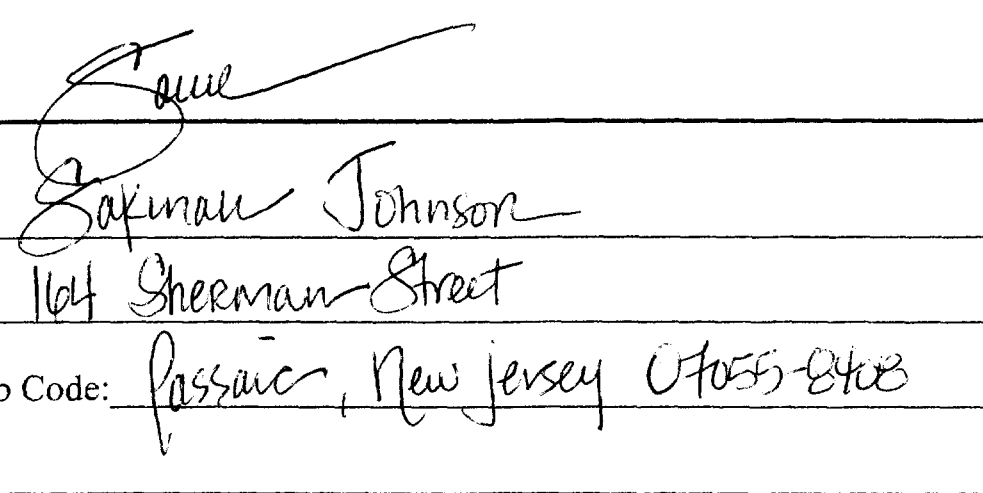 Same
Sakinah Johnson
164 Sherman Street
p Code: Passaic, New Jersey 07055-8408